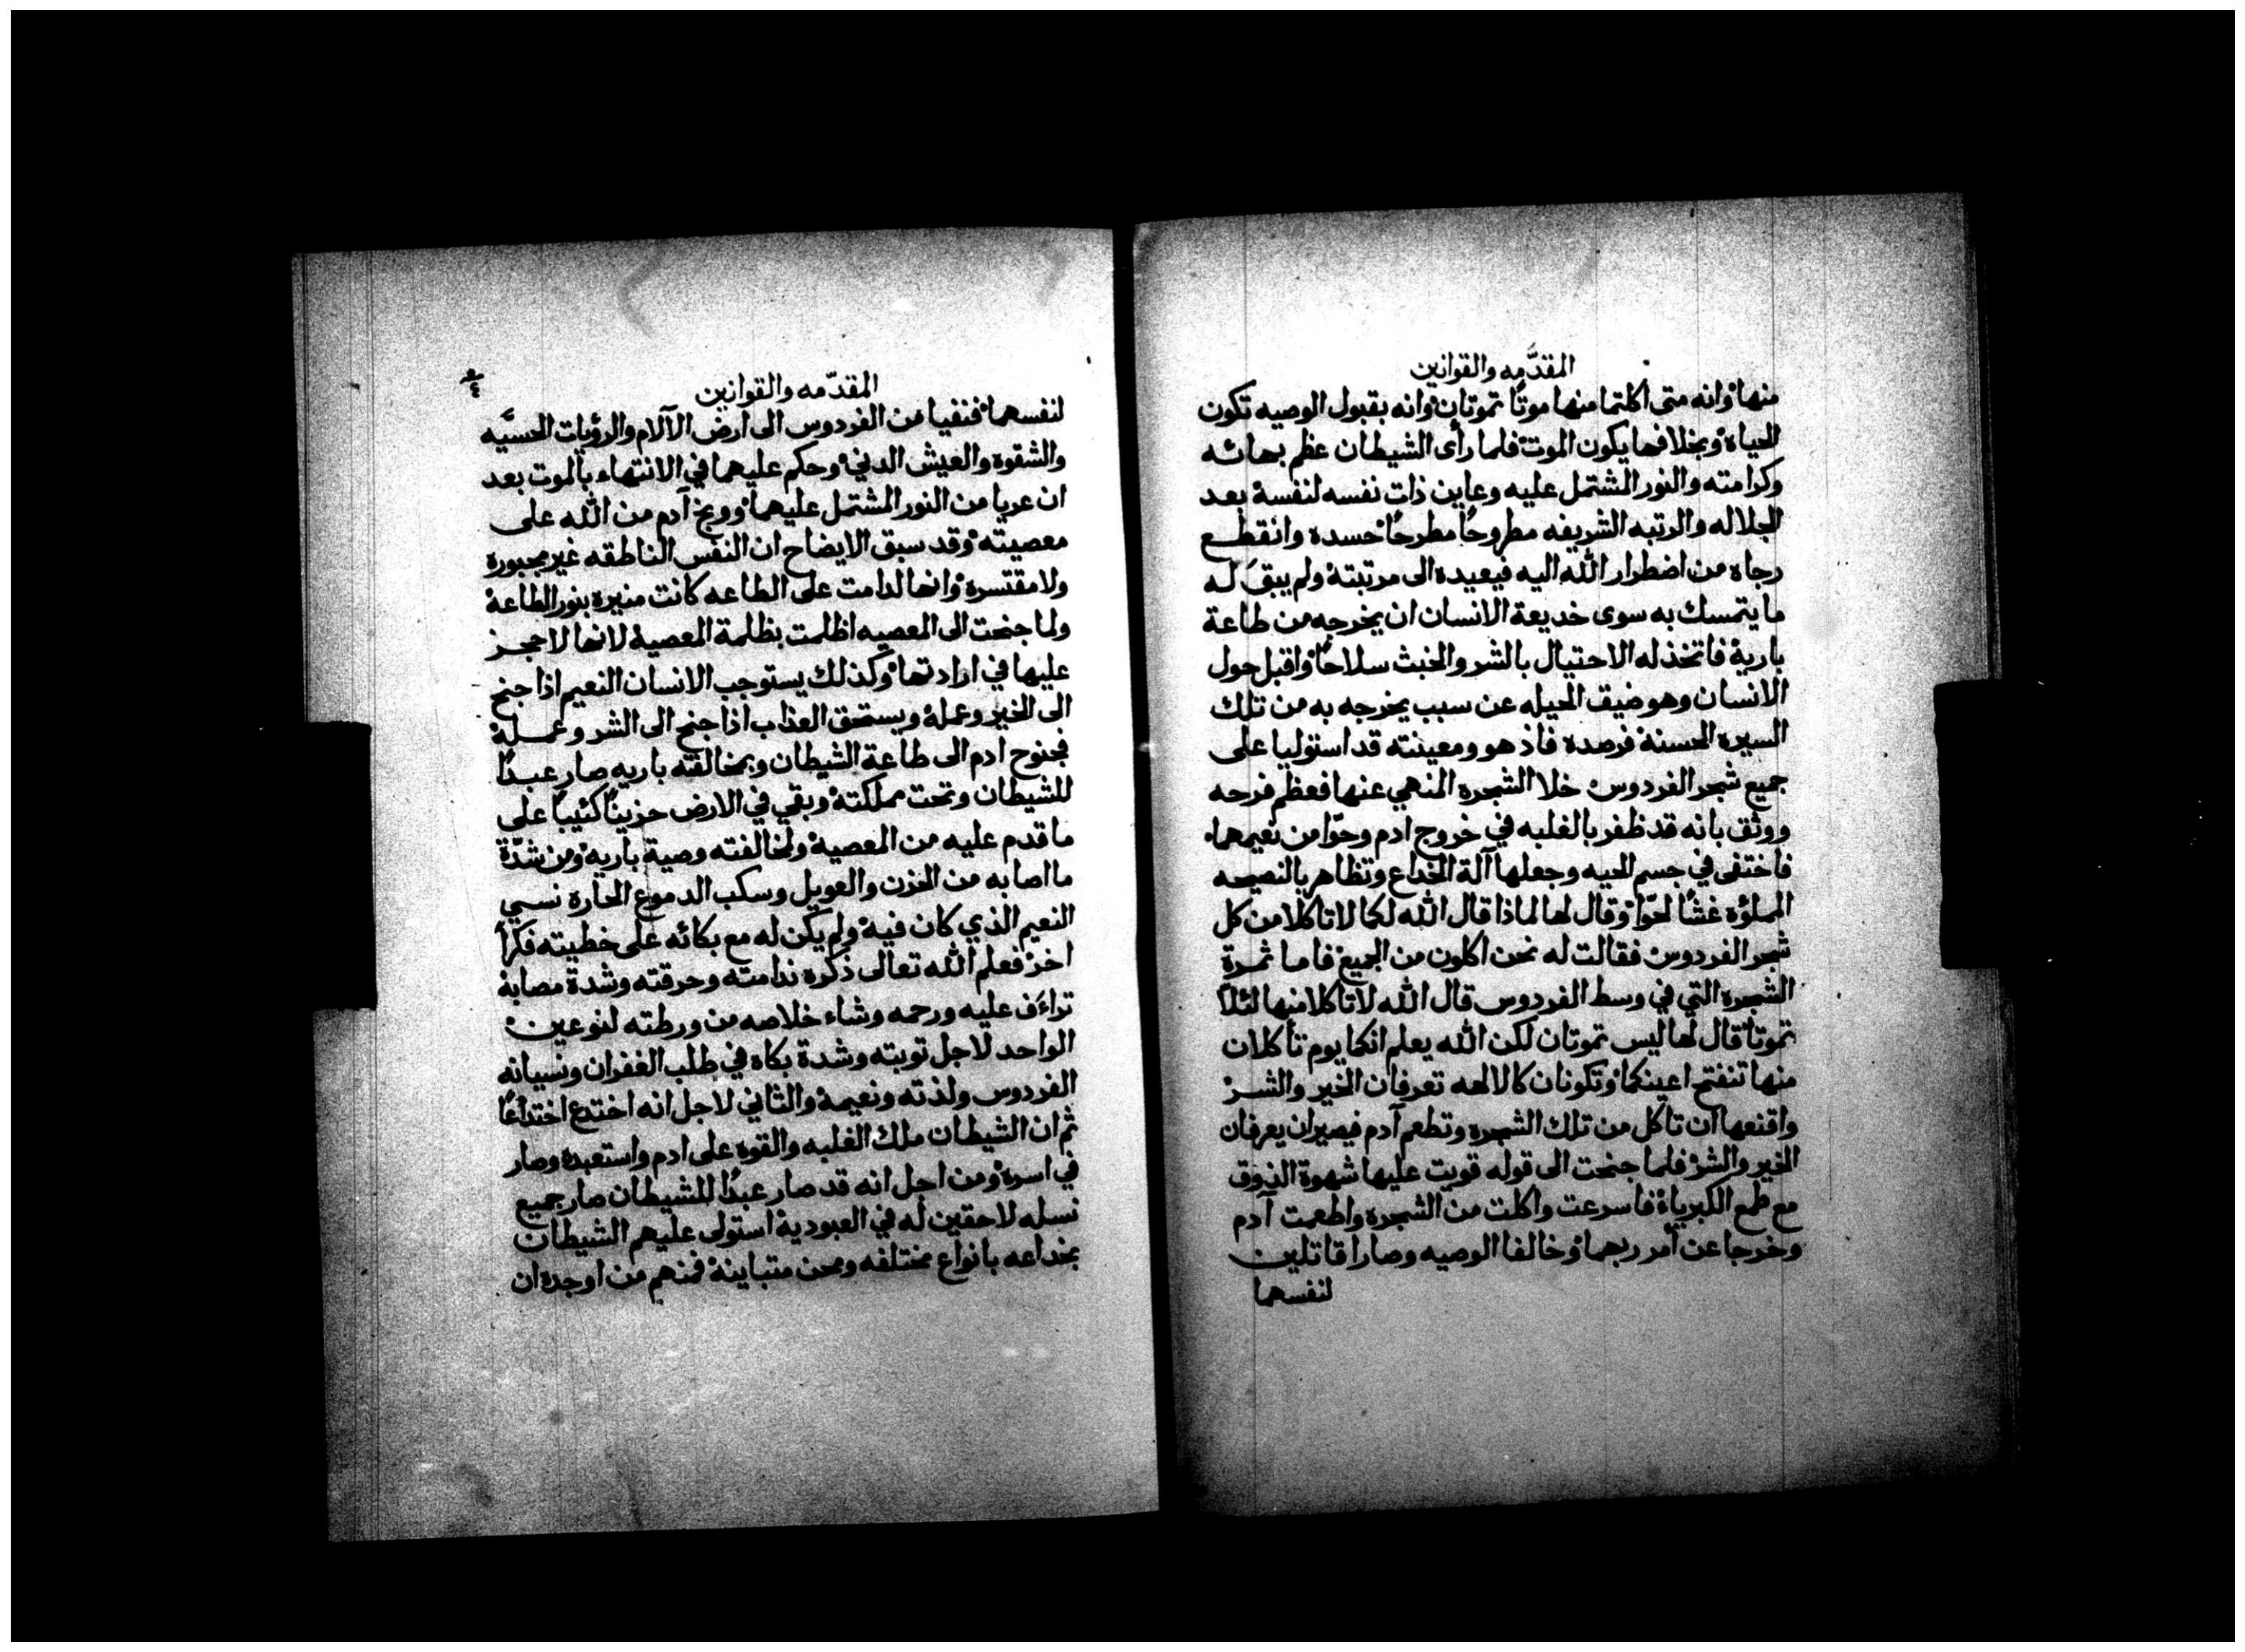 المقدَّمه والقوانين
منها وانه متى اكلتما منها موتًا تموتان وانه بقبول الوصيه تكون
الحياه وبخلافها يكون الموت فلما رأى الشيطان عظم بهائه
وكرامته والنور المشتمل عليه وعاين ذات نفسه لنفسه بعد
الجلاله والرتبه الشريفه مطروحًا مطرحًا حسده وانقطع
رجاه من اضطرار الله اليه فيعيده الى مرتبته ولم يبقَ له
ما يتمسك به سوى خديعة الانسان ان يخرجه من طاعة
باريه فاتخذ له الاحتيال بالشر والخبث سلاحًا واقبل حول
الانسان وهو ضيق الحيله عن سبب يخرجه به من تلك
السيره الحسنه فرصده فاذ هو ومعينته قد استوليا على
جميع شجر الفردوس خلا الشجره المنهي عنها فعظم فرحه
ووثق بانه قد ظفر بالغلبه في خروج ادم وحوّا من نعيمهما
فاختفى في جسم الحيه وجعلها آلة الخداع وتظاهر بالنصيحه
المملؤه غشًا لحوّا وقال لها لماذا قال الله لكما لا تاكلا من كل
شجر الفردوس فقالت له نحن اكلون من الجميع فاما ثمرة
الشجره التي في وسط الفردوس قال الله لا تاكلا منها لئلا
تموتا قال لها ليس تموتان لكن الله يعلم انكما يوم تأكلان
منها تنفتح اعينكما وتكونان كالالهه تعرفان الخير والشر
واقنعها ان تاكل من تلك الشجره وتطعم آدم فيصيران يعرفان
الخير والشر فلما جنحت الى قوله قويت عليها شهوة الذوق
مع طمع الكبرياء فاسرعت واكلت من الشجره واطعمت آدم
وخرجا عن أمر ربهما وخالفا الوصيه وصارا قاتلين
لنفسهما
المقدّمه والقوانين
لنفسهما فنفيا من الفردوس الى ارض الآلام والرؤيات الحسيَّه
والشقوه والعيش الدني وحكم عليهما في الانتهاء بالموت بعد
ان عريا من النور المشتمل عليهما ووبخ آدم من الله على
معصيته وقد سبق الايضاح ان النفس الناطقه غير مجبوره
ولا مقتسره وانها لدامت على الطاعه كانت منيره بنور الطاعه
ولما جنحت الى المعصيه اظلمت بظلمة المعصيه لانها لا حجز
عليها في ارادتها وكذلك يستوجب الانسان النعيم اذا جنح
الى الخير وعمله ويستحق العذاب اذا جنح الى الشر وعمله
فجنوح ادم الى طاعة الشيطان وبمخالفته باريه صار عبدًا
للشيطان وتحت مملكته وبقي في الارض حزينًا كئيبًا على
ما قدم عليه من المعصيه ولمخالفته وصية باريه ومن شدّة
ما اصابه من الحزن والعويل وسكب الدموع الحاره نسي
النعيم الذي كان فيه ولم يكن له مع بكائه على خطيته فكرًا
اخر فعلم الله تعالى ذكره ندامته وحرقته وشدة مصابه
تراءَف عليه ورحمه وشاء خلاصه من ورطته لنوعين
الواحد لاجل توبته وشدة بكاه في طلب الغفران ونسيانه
الفردوس ولذته ونعيمه والثاني لاجل انه اختدع اختداعًا
ثم ان الشيطان ملك الغلبه والقوه على ادم واستعبده وصار
في اسره ومن اجل انه قد صار عبدًا للشيطان صار جميع
نسله لاحقين له في العبوديه استولى عليهم الشيطان
بخداعه بانواع مختلفه ومحن متباينه فمنهم من اوجده ان